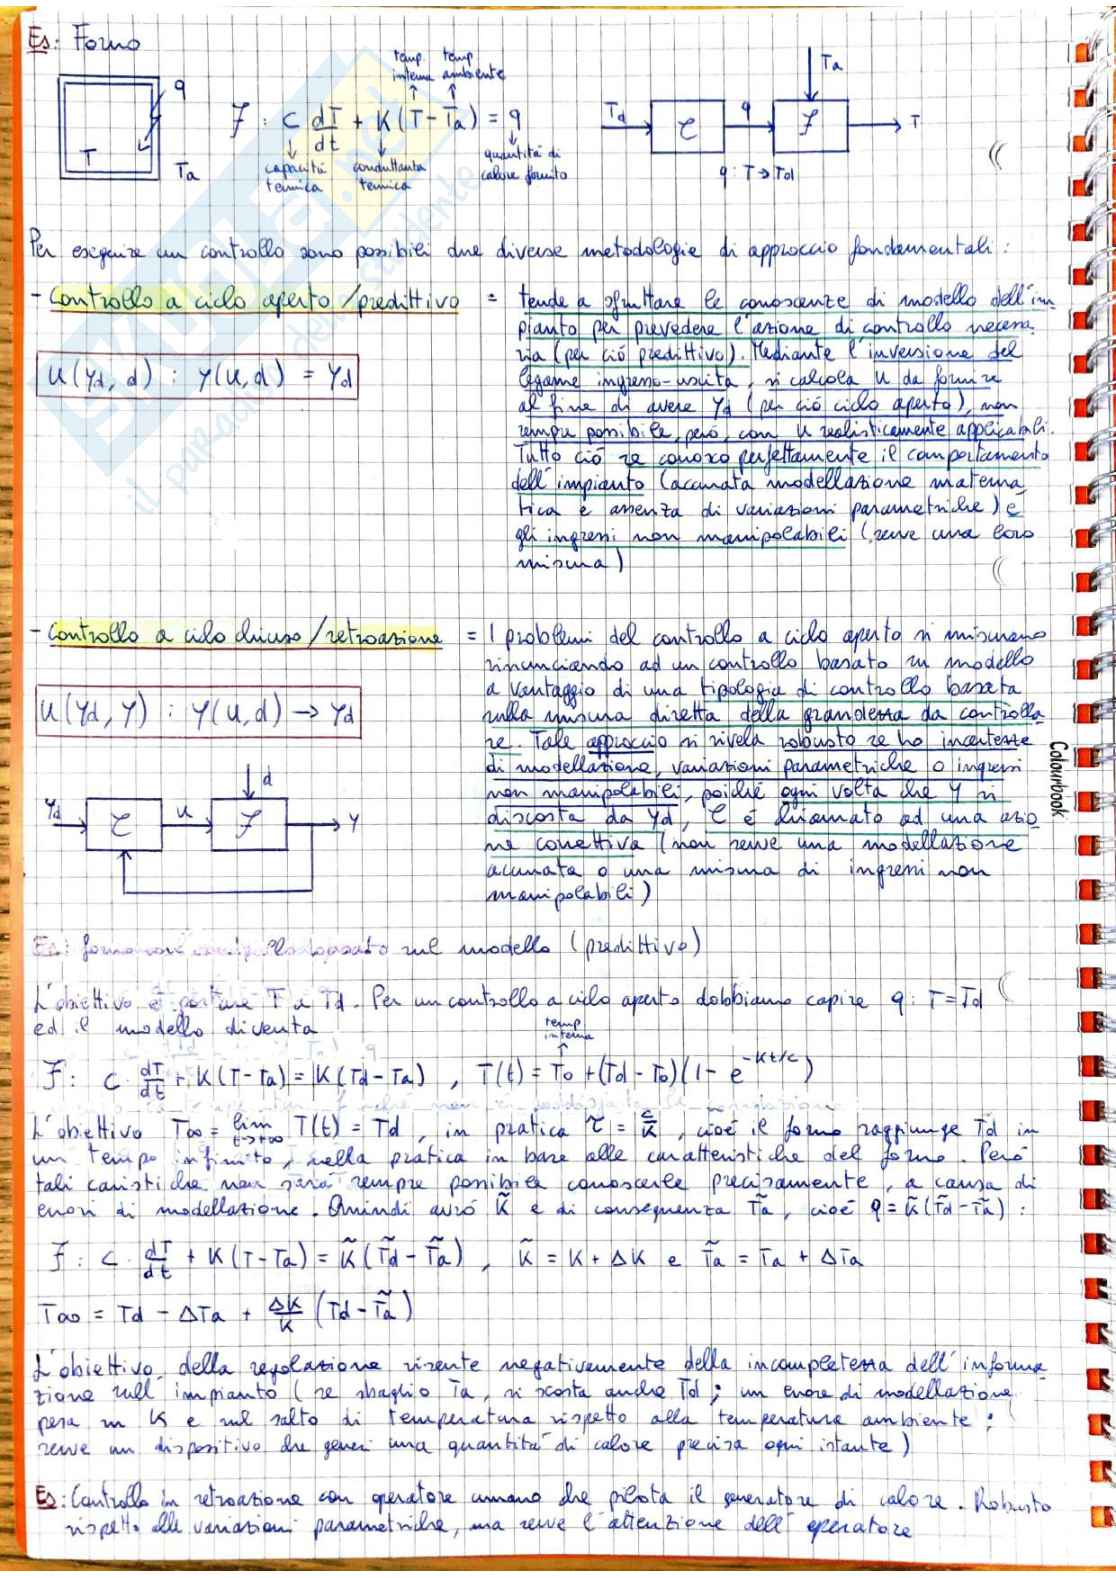 Es: Forno
temp. interna temp ambiente
q
T
Ta
F : C dT/dt + K(T - Ta) = q
capacità termica
conduttanza termica
quantità di calore fornito
Td
C
q
F
Ta
T
q : T → Td
Per eseguire un controllo sono possibili due diverse metodologie di approccio fondamentali :
- Controllo a ciclo aperto / predittivo = tende a sfruttare le conoscenze di modello dell'im
pianto per prevedere l'azione di controllo necessa
ria (per ciò predittivo). Mediante l'inversione del
legame ingresso-uscita, si calcola u da fornire
al fine di avere Yd (per ciò ciclo aperto), non
sempre possibile, però, con u realisticamente applicabili.
Tutto ciò se conosco perfettamente il comportamento
dell'impianto (accurata modellazione matema
tica e assenza di variazioni parametriche) e
gli ingressi non manipolabili (serve una loro
misura)
u(Yd, d) : Y(u,d) = Yd
- Controllo a ciclo chiuso / retroazione = I problemi del controllo a ciclo aperto si misurano
rinunciando ad un controllo basato su modello
a vantaggio di una tipologia di controllo basata
sulla misura diretta della grandezza da controlla
re. Tale approccio si rivela robusto se ho incertezze
di modellazione, variazioni parametriche o ingressi
non manipolabili, poiché ogni volta che Y si
discosta da Yd, C è chiamato ad una azio
ne correttiva (non serve una modellazione
accurata o una misura di ingressi non
manipolabili)
u(Yd, Y) : Y(u,d) → Yd
Yd
C
u
d
F
Y
Colourbook
Es: forno con sul modello (predittivo)
L'obiettivo è portare T a Td. Per un controllo a ciclo aperto dobbiamo capire q : T = Td
ed il modello diventa
temp interna
F : C · dT/dt + K(T - Ta) = K(Td - Ta) , T(t) = To + (Td - To)(1 - e^-Kt/C)
L'obiettivo T∞ = lim t→+∞ T(t) = Td , in pratica τ = C/K , cioè il forno raggiunge Td in
un tempo infinito, nella pratica in base alle caratteristiche del forno. Però
tali caristiche non sarà sempre possibile conoscerle precisamente, a causa di
errori di modellazione. Quindi avrò K̃ e di conseguenza T̃a, cioè q = K̃(T̃d - T̃a) :
F : C · dT/dt + K(T - Ta) = K̃(T̃d - T̃a) , K̃ = K + ΔK e T̃a = Ta + ΔTa
T∞ = Td - ΔTa + ΔK/K (Td - T̃a)
L'obiettivo della regolazione risente negativamente della incompletezza dell'informa
zione sull'impianto (se sbaglio Ta, si scosta anche Td ; un errore di modellazione
pesa su K e sul salto di temperatura rispetto alla temperatura ambiente ;
serve un dispositivo che generi una quantità di calore precisa ogni istante)
Es: Controllo in retroazione con operatore umano che pilota il generatore di calore. Robusto
rispetto alle variazioni parametriche, ma serve l'attenzione dell'operatore